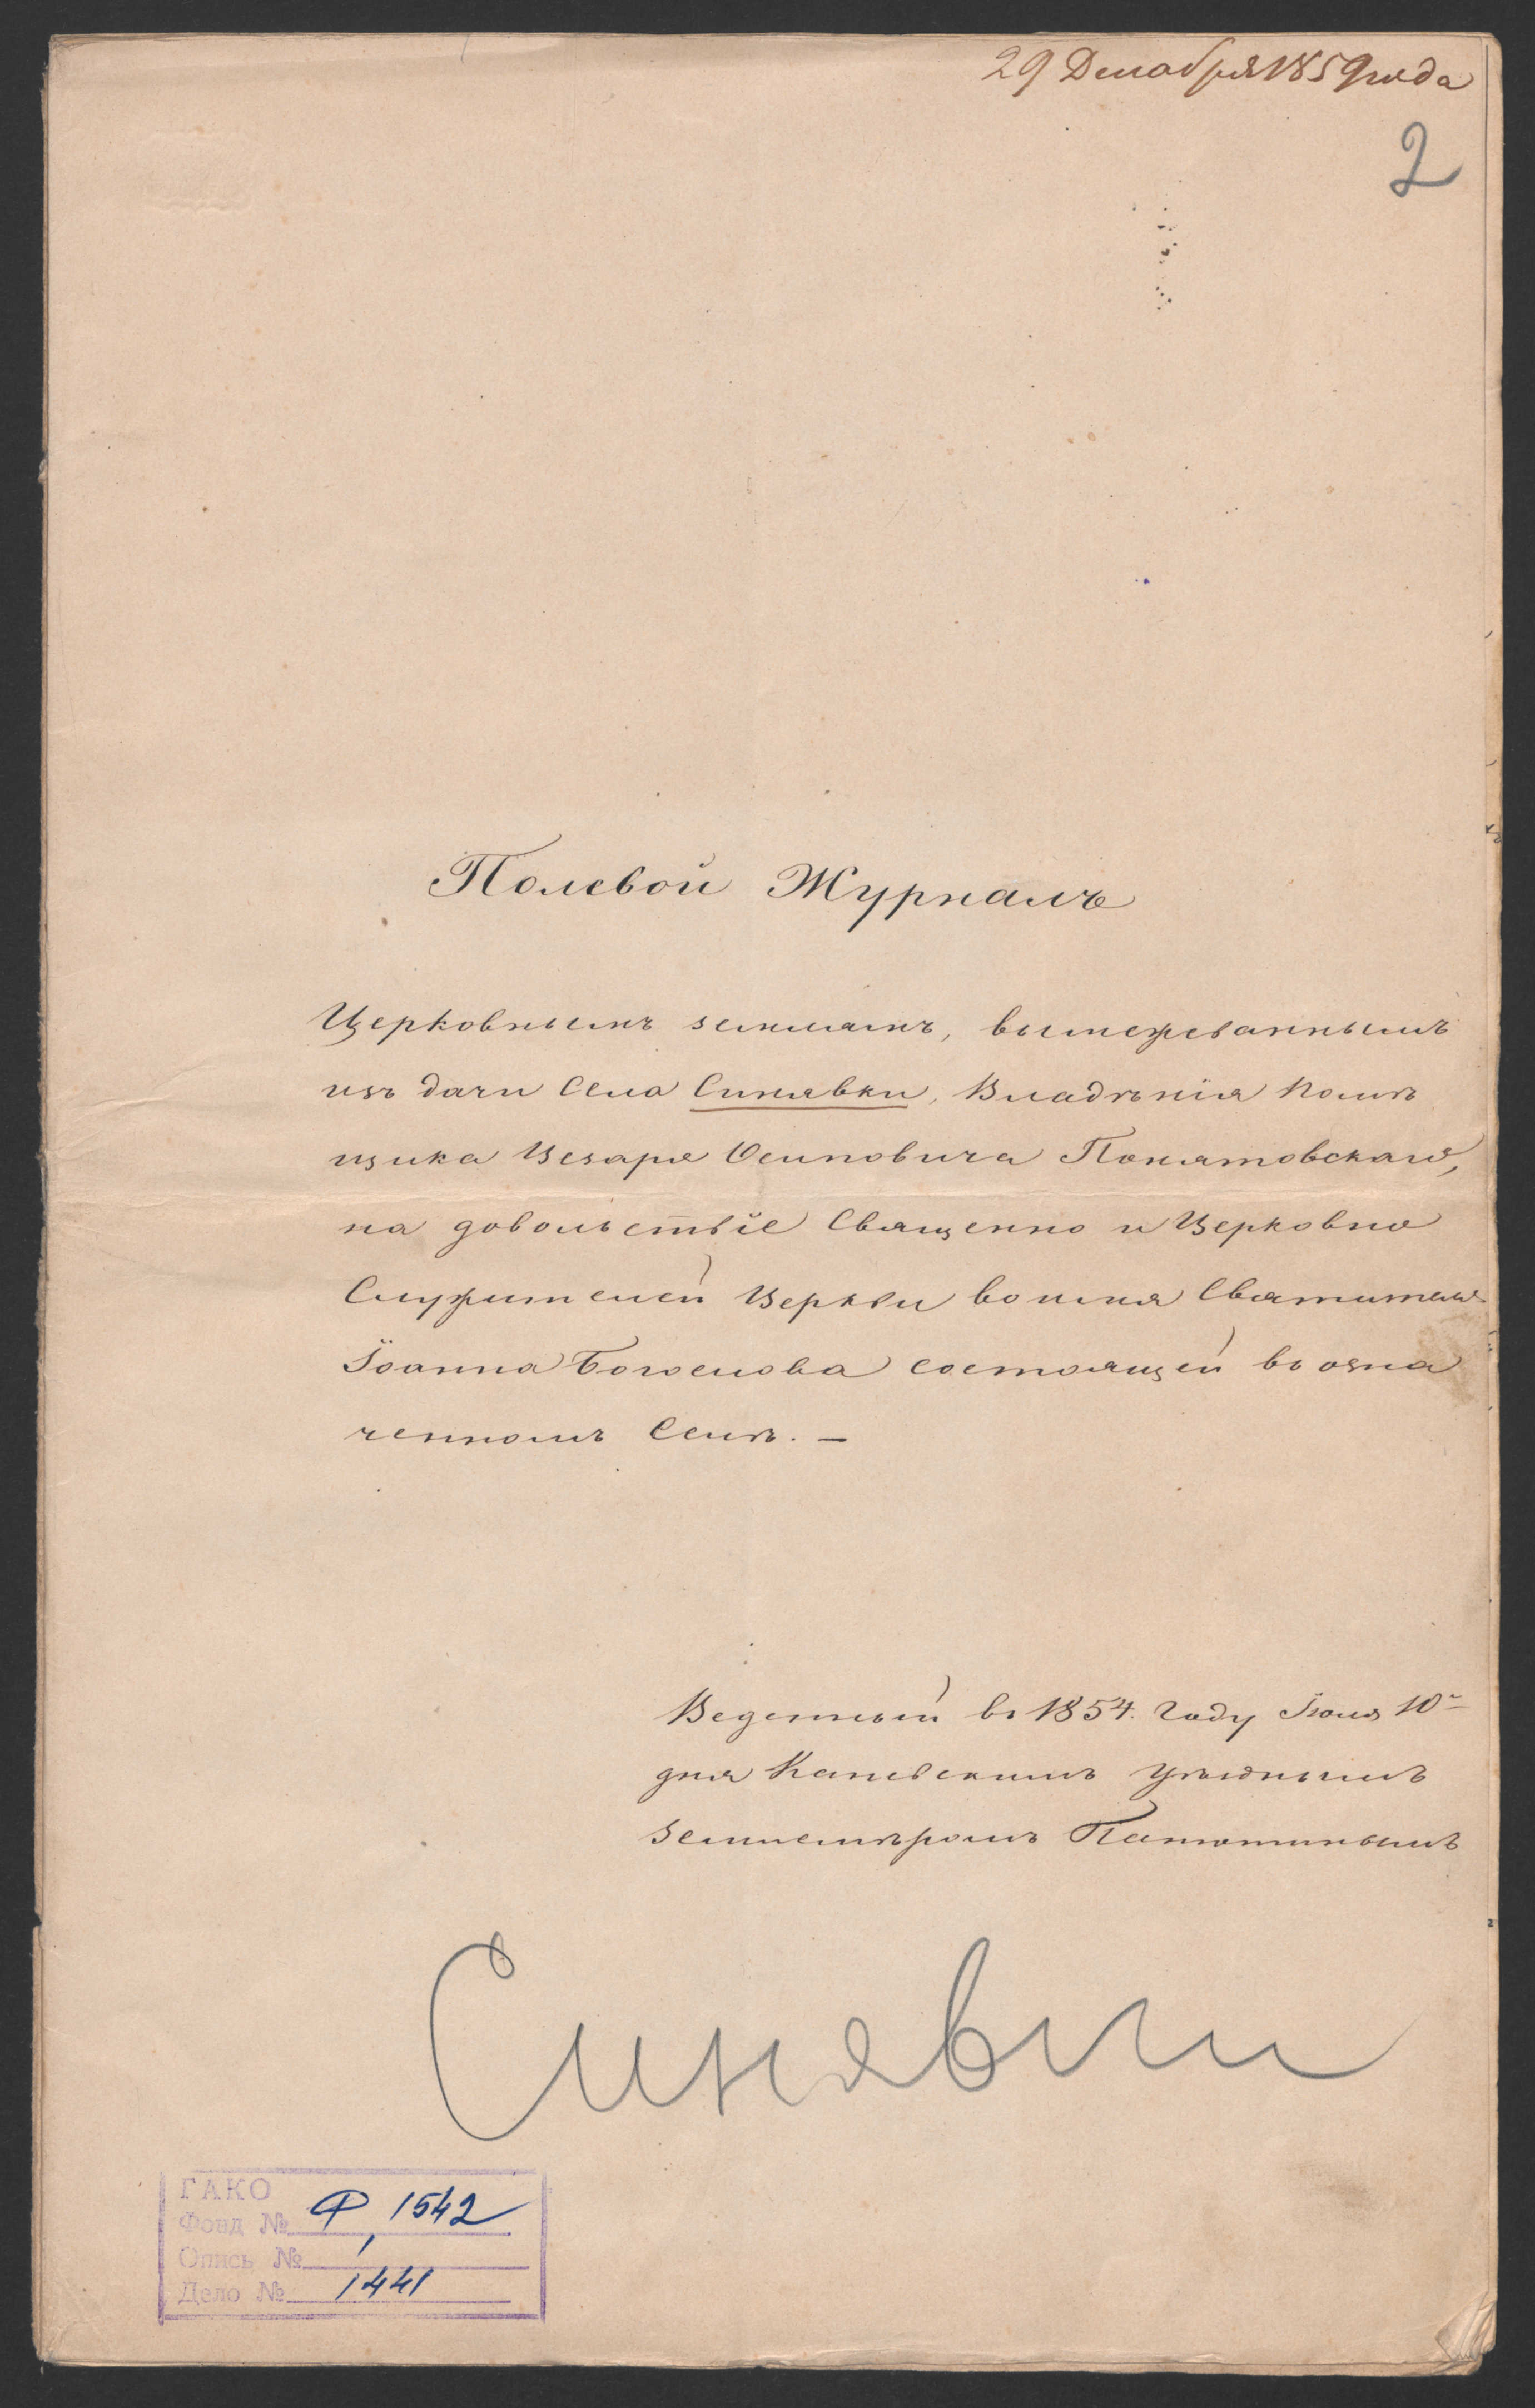 29 Декабря 1859 года
2
Полевой Журналъ
Церковнымъ землямъ, вымежеваннымъ
изъ дачи Села Синявки, Владѣнія помѣ
щика Цезаря Осиповича Понятовскаго,
на довольствіе Священно и Церковно
Служителей Церкви во имя Святителя
Іоанна Богослова состоящей въ озна
ченномъ Селѣ. –
Веденный въ 1854. году Іюля 10
дня Каневскимъ уѣзднымъ
землемѣромъ Патютинымъ
Синявки
ГАКО
Фонд № Ф. 1542
Опись № 1
Дело № 1441